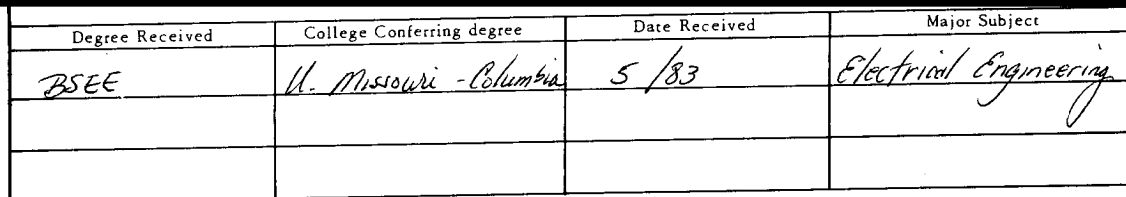 Degree Received College Conferring degree Date Received Major Subject
BSEE U. Missouri - Columbia 5/83 Electrical Engineering